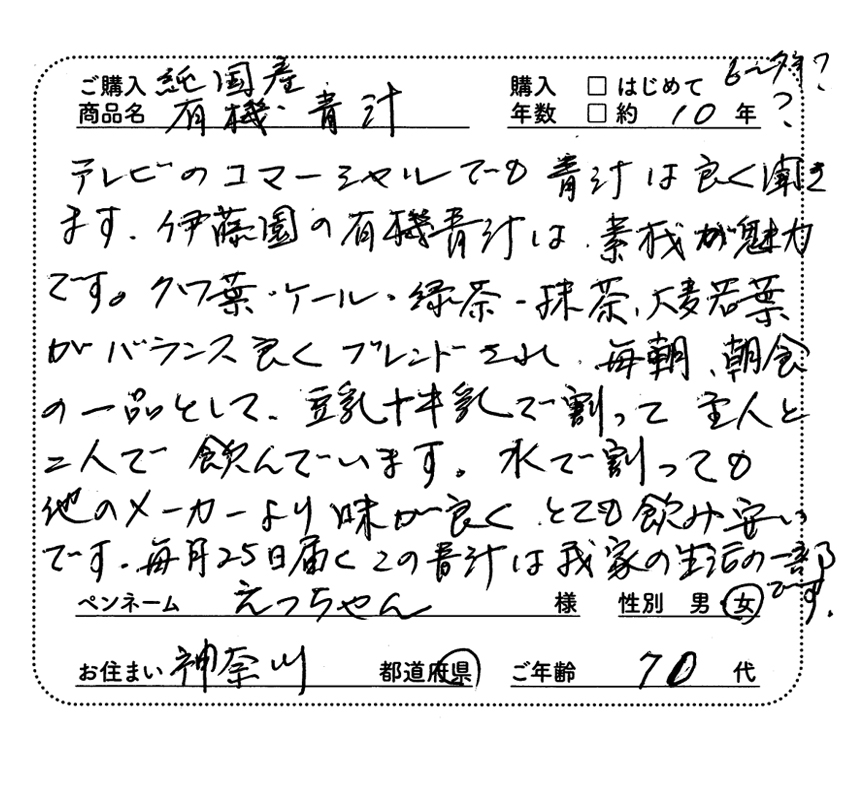 ご購入 純国産 購入 □ はじめて
商品名 有機・青汁 年数 □ 約 10 年 ?
テレビのコマーシャルでも青汁は良く聞き
ます。伊藤園の有機青汁は、素材が魅力
です。クワ葉・ケール・緑茶・抹茶、大麦若葉
がバランス良くブレンドされ、毎朝、朝食
の一品として、豆乳+牛乳で割って主人と
二人で飲んでいます。水で割っても
他のメーカーより味が良く、とても飲み安い
です。毎月25日届くこの青汁は我家の生活の一部
です。
ペンネーム えっちゃん 様 性別 男 女
お住まい 神奈川 都道府県 ご年齢 70 代